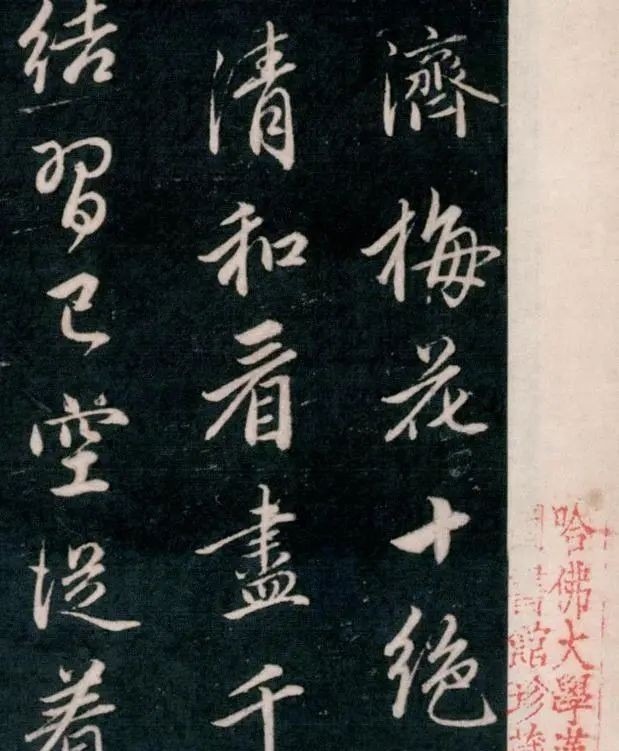 哈佛大學燕
圖書館珍藏
濟梅花十絕
清和看盡千
結習已空從着